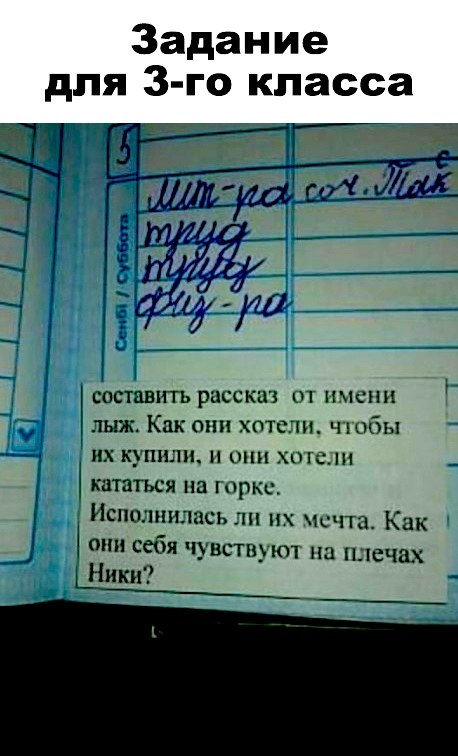 Задание
для 3-го класса
5
Сенбі / Суббота
лит-ра соч.
труд
труд
физ-ра
составить рассказ от имени
лыж. Как они хотели, чтобы
их купили, и они хотели
кататься на горке.
Исполнилась ли их мечта. Как
они себя чувствуют на плечах
Ники?